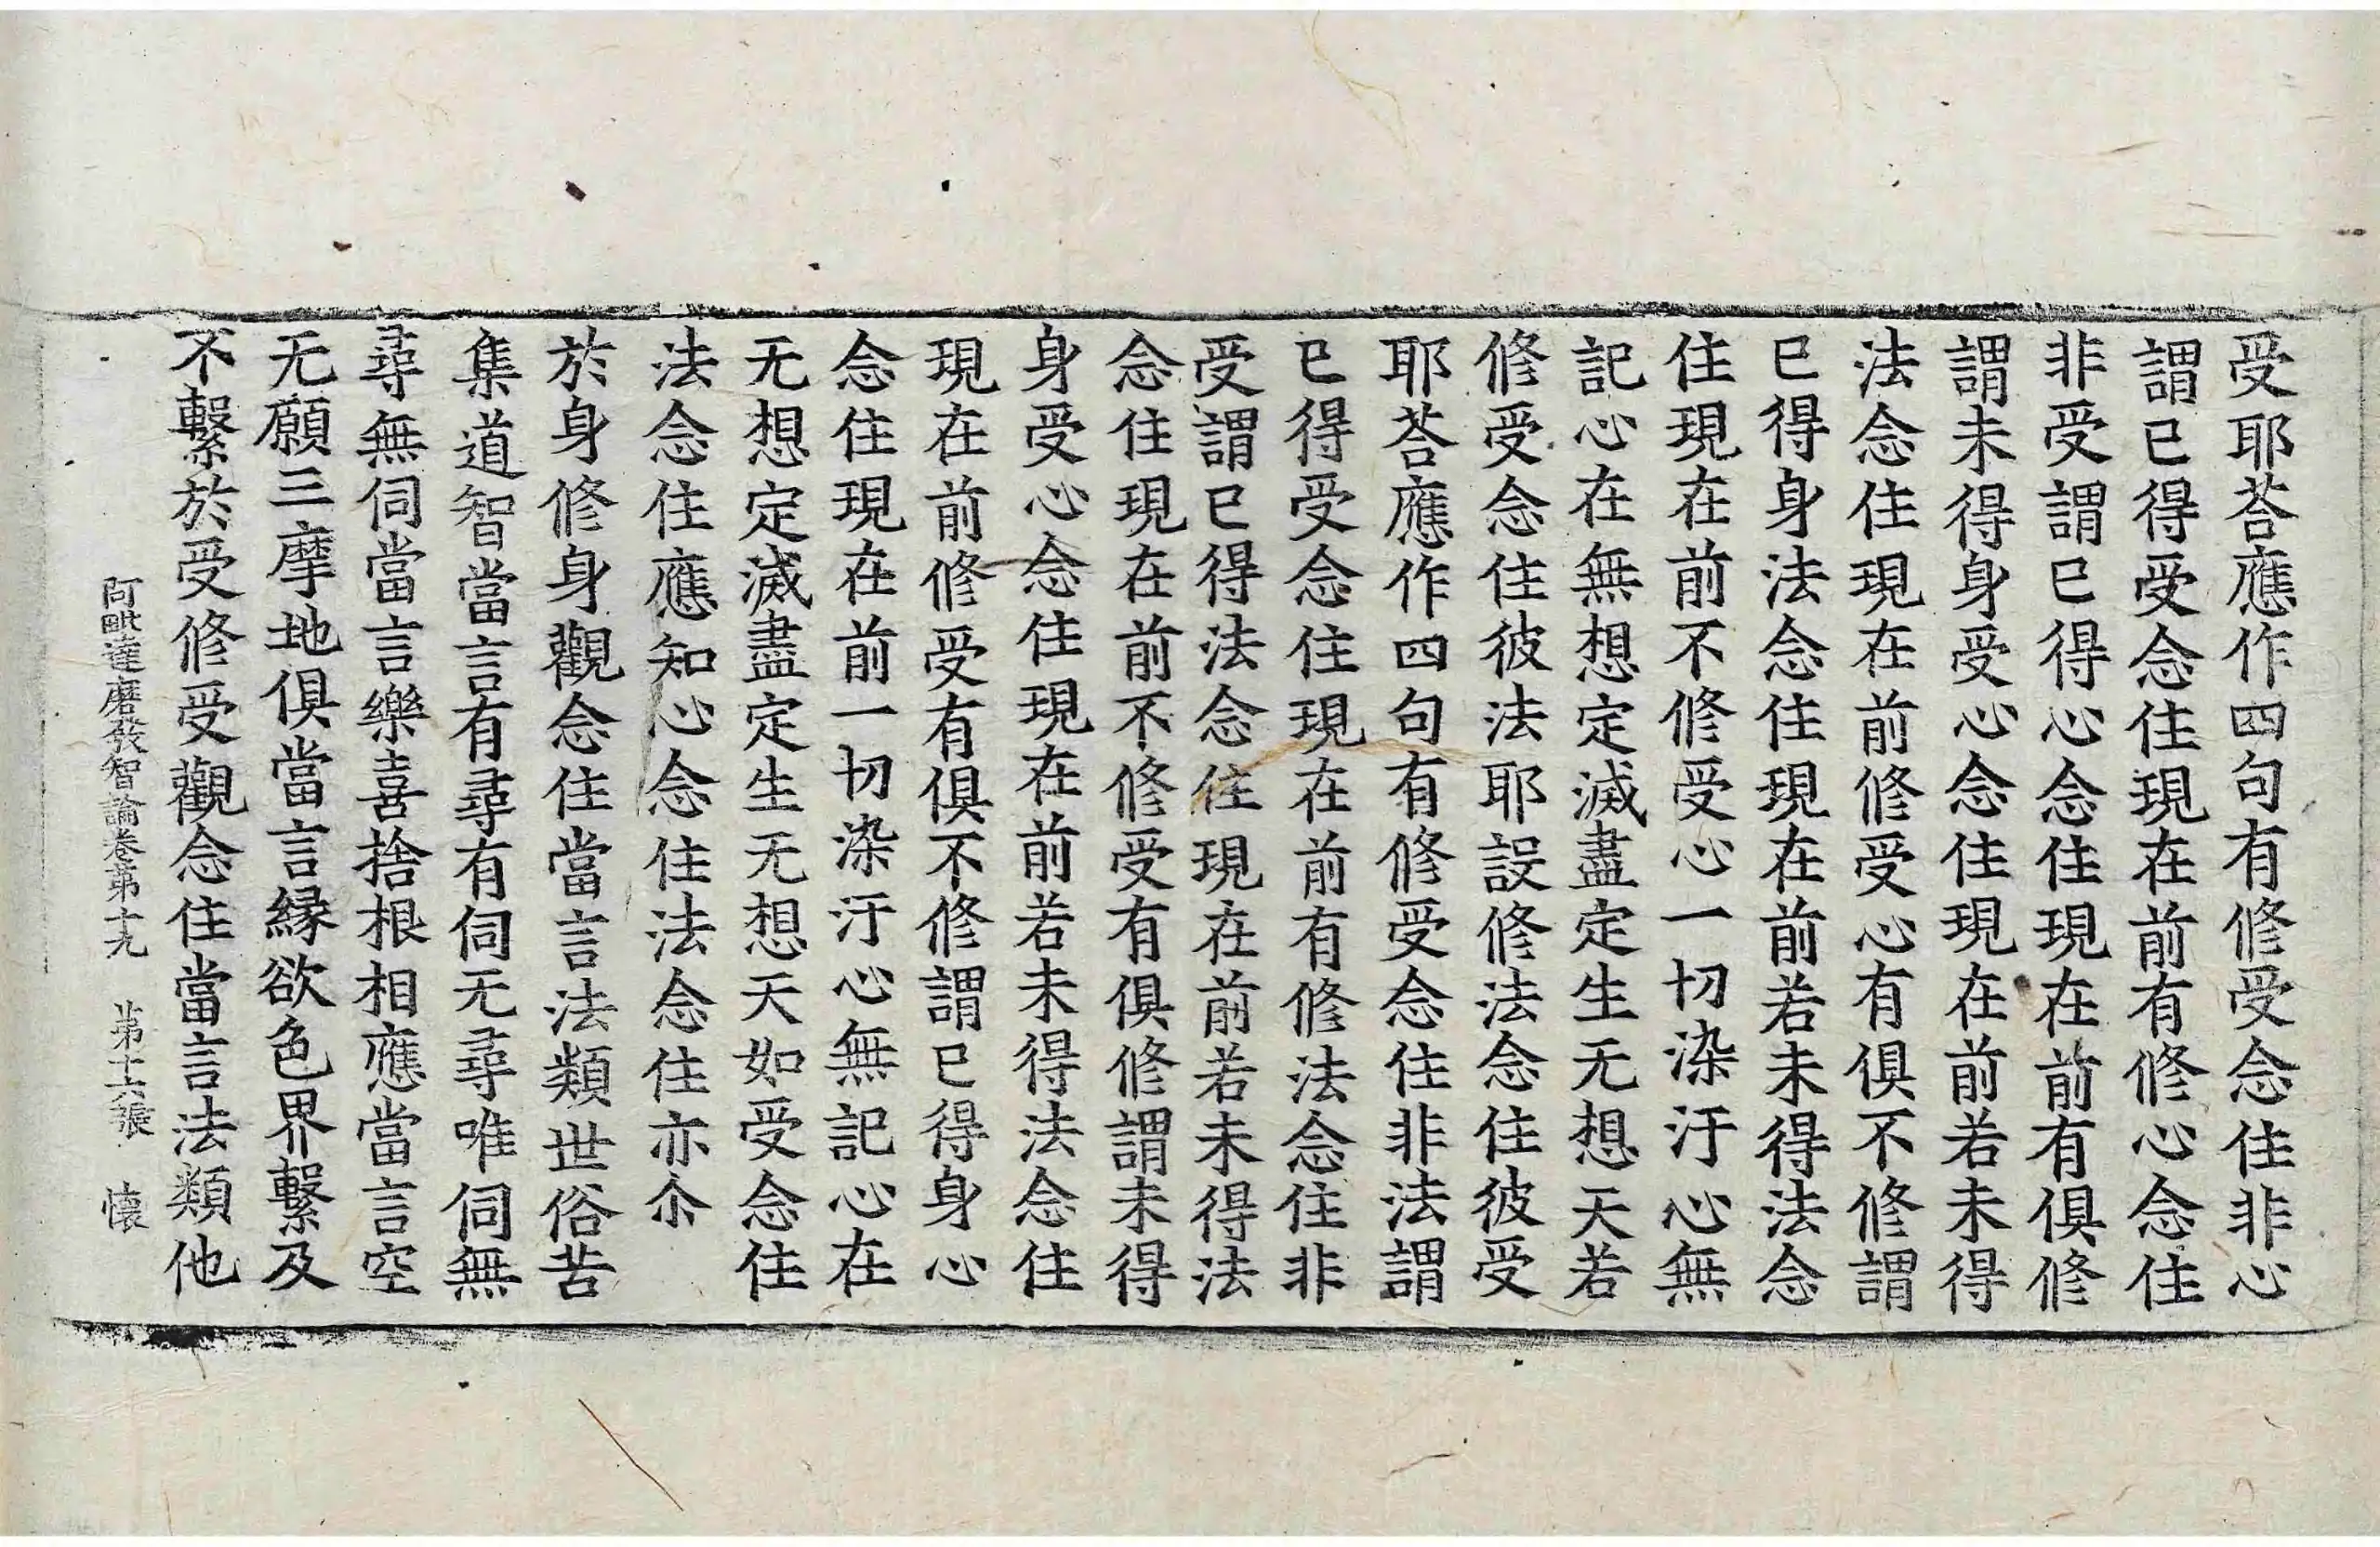 受耶荅應作四句有修受念住非心
謂已得受念住現在前有修心念住
非受謂已得心念住現在前有俱修
謂未得身受心念住現在前若未得
法念住現在前修受心有俱不修謂
已得身法念住現在前若未得法念
住現在前不修受心一切染汙心無
記心在無想定滅盡定生无想天若
修受念住彼法耶設修法念住彼受
耶荅應作四句有修受念住非法謂
已得受念住現在前有修法念住非
受謂已得法念住現在前若未得法
念住現在前不修受有俱修謂未得
身受心念住現在前若未得法念住
現在前修受有俱不修謂已得身心
念住現在前一切染汙心無記心在
无想定滅盡定生无想天如受念住
法念住應知心念住法念住亦尒
於身修身觀念住當言法類世俗苦
集道智當言有尋有伺无尋唯伺無
尋無伺當言樂喜捨根相應當言空
无願三摩地俱當言緣欲色界繫及
不繫於受修受觀念住當言法類他
阿毗達磨發智論卷第十九 第十六張 懷